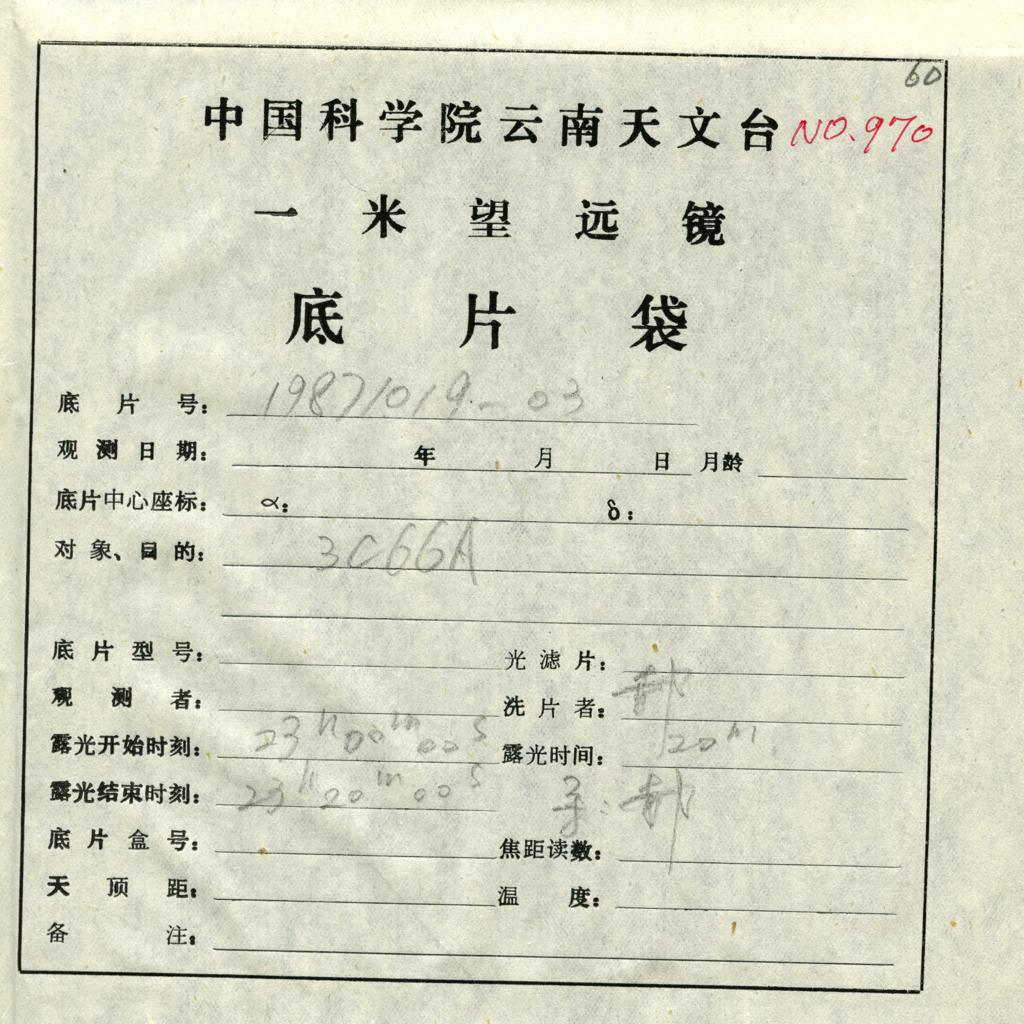 60
中国科学院云南天文台 NO.970
一米望远镜
底片袋
底片号: 19871019-03
观测日期: 年 月 日 月龄
底片中心座标: α: δ:
对象、目的: 3C66A
底片型号: 光滤片:
观测者: 洗片者: 郝
露光开始时刻: 23h00m00s 露光时间: 20m
露光结束时刻: 23h20m00s
底片盒号: 焦距读数:
天顶距: 温度:
备注: